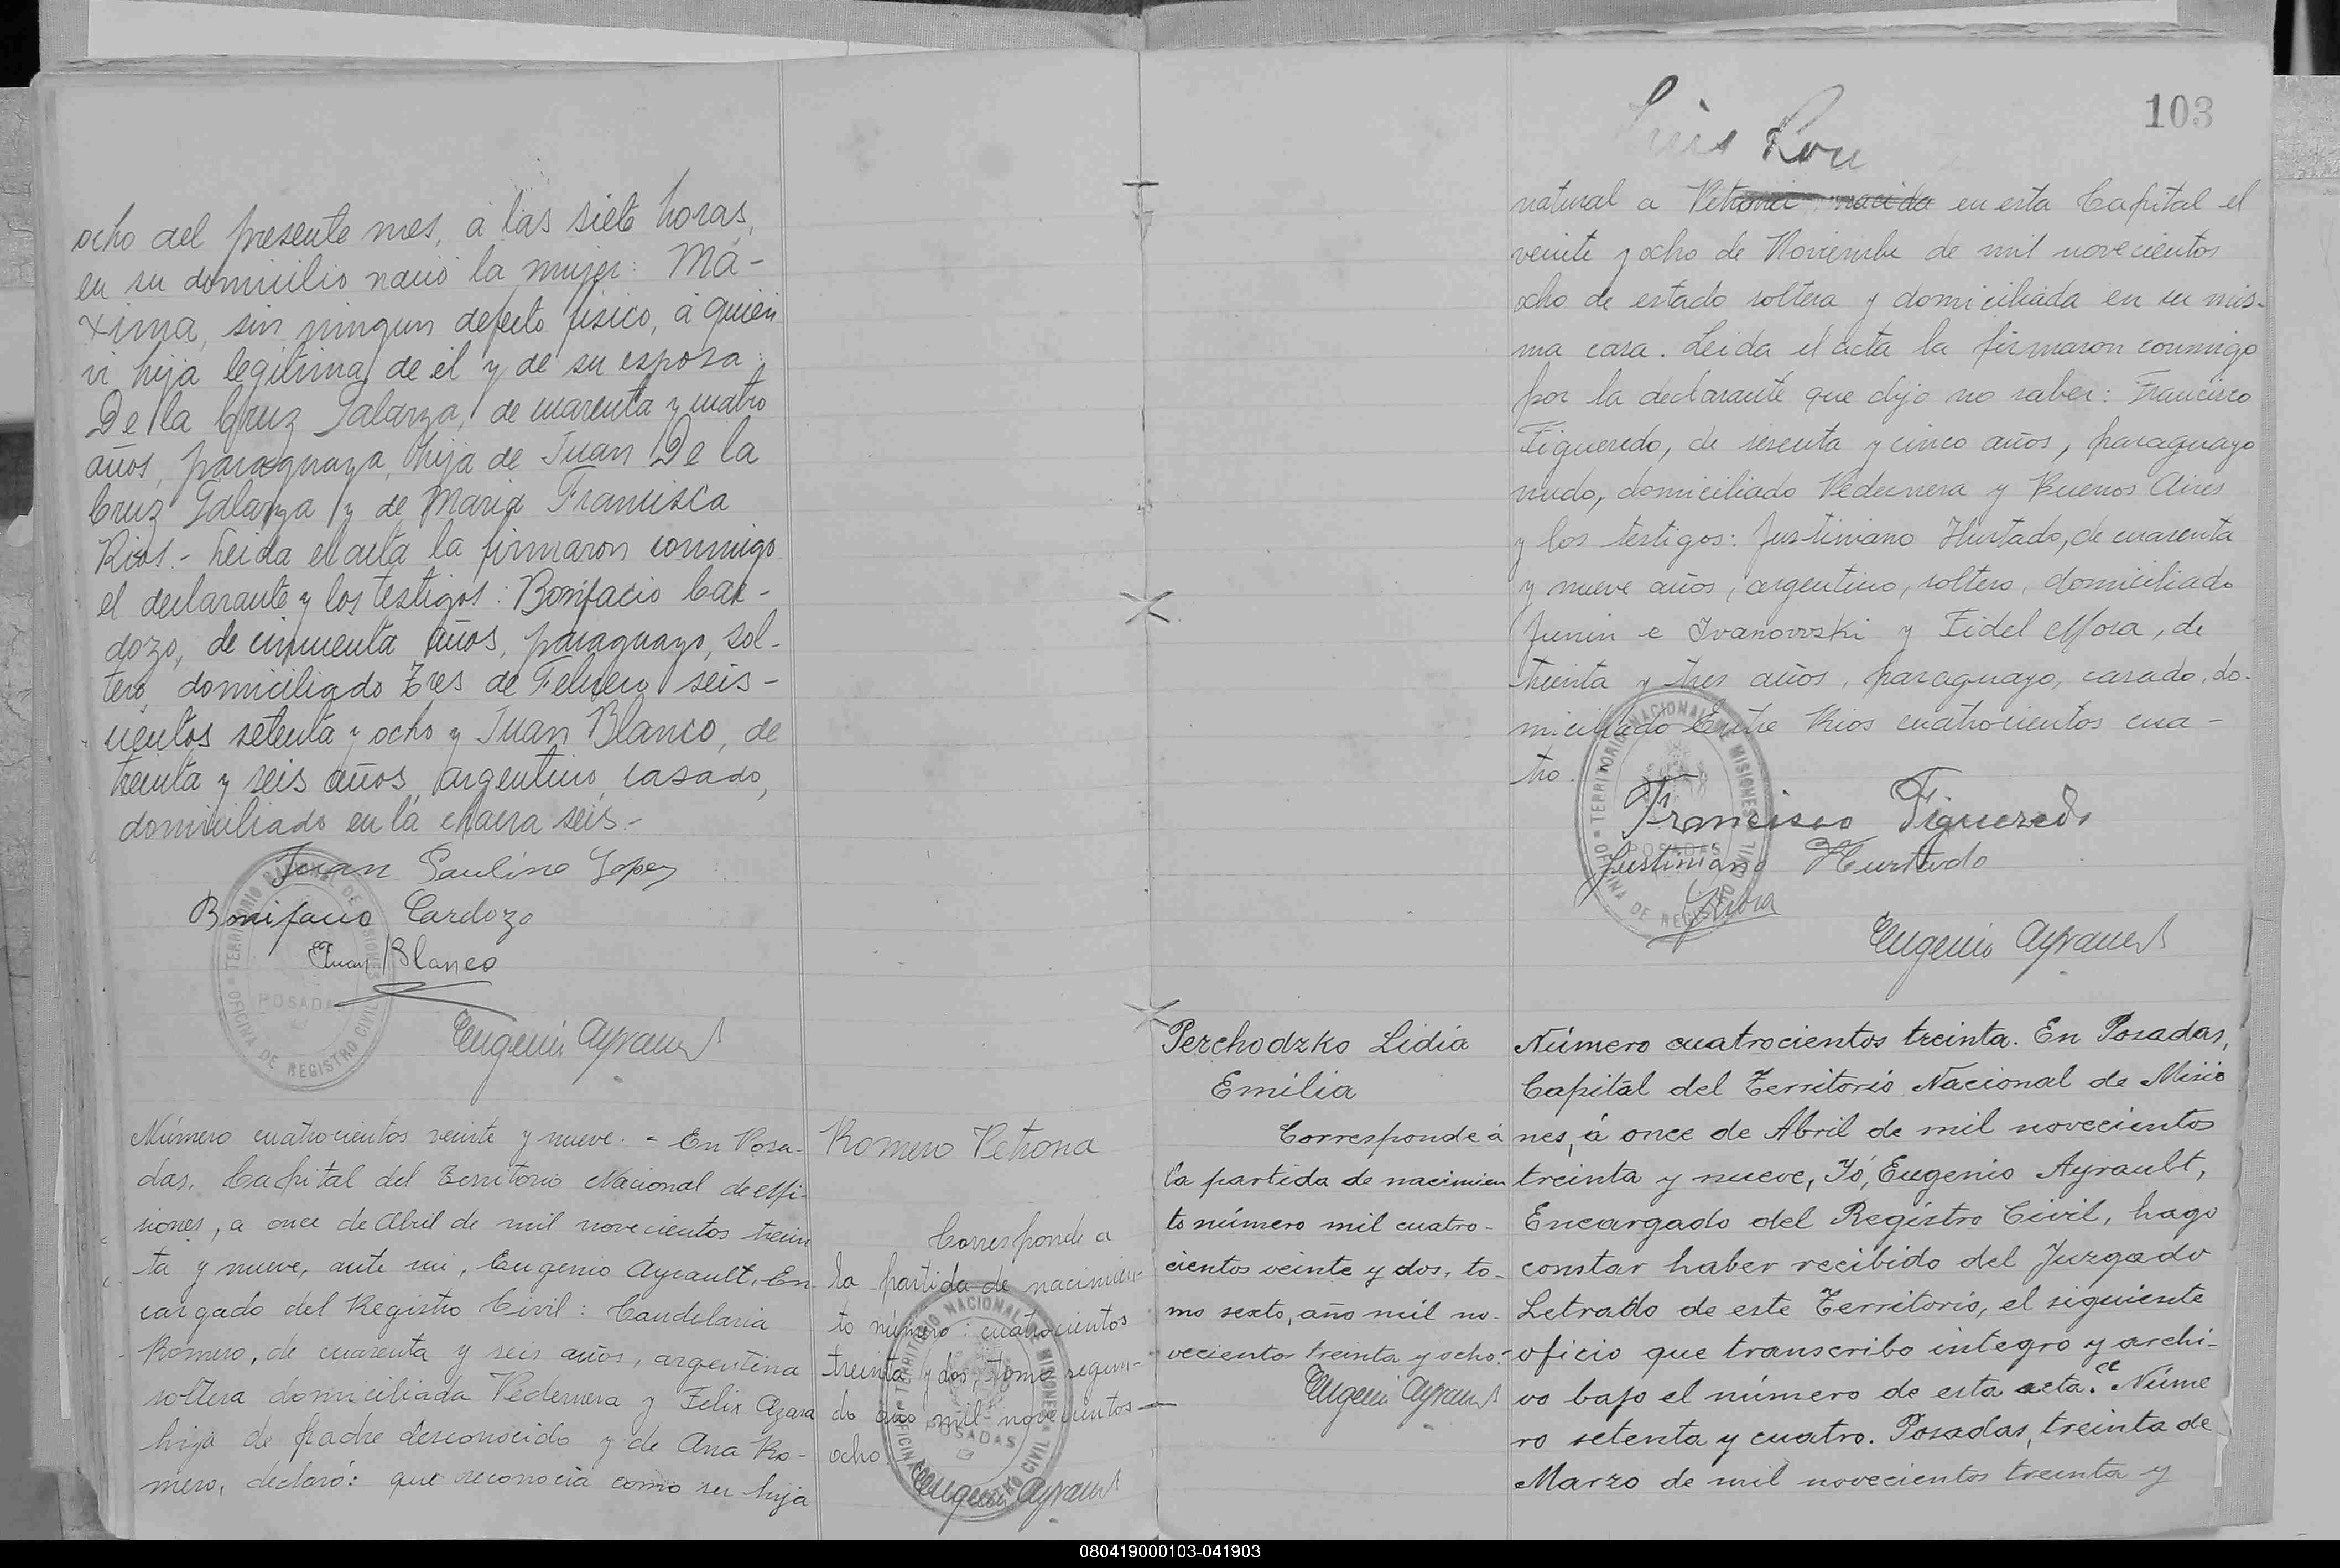 ocho del presente mes, á las siete horas,
en su domicilio nació la mujer: Má-
xima, sin ningun defecto fisico, á quien
vi hija legitima de él y de su esposa:
De la Cruz Galarza, de cuarenta y cuatro
años, paraguaya, hija de Juan De la
Cruz Galarza y de Maria Francisca
Rios.- Leida el acta la firmaron conmigo
el declarante y los testigos: Bonifacio Car-
dozo, de cincuenta años, paraguayo, sol-
tero, domiciliado Tres de Febrero seis-
cientos setenta y ocho y Juan Blanco, de
treinta y seis años, argentino, casado,
domiciliado en la chacra seis.-
Juan Paulino Lopez
Bonifacio Cardozo
Juan Blanco
Eugenio Ayrault
TERRITORIO NACIONAL DE MISIONES
POSADAS
OFICINA DE REGISTRO CIVIL
Número cuatrocientos veinte y nueve. - En Posa-
das, Capital del Territorio Nacional de Mi-
siones, a once de Abril de mil novecientos trein
ta y nueve, ante mi, Eugenio Ayrault, En-
cargado del Registro Civil: Candelaria
Romero, de cuarenta y seis años, argentina
soltera domiciliada Vedernera y Felix Azara
hija de padre desconocido y de Ana Ro-
mero, declaró: que reconocia como su hija
Romero Petrona
Corresponde a
la partida de nacimien-
to número: cuatrocientos
treinta y dos, tomo segun-
do año mil novecientos
ocho
Eugenio Ayrault
TERRITORIO NACIONAL DE MISIONES
POSADAS
OFICINA DE REGISTRO CIVIL
103
Luis Lou
natural a Petrona nacida en esta Capital el
veinte y ocho de Noviembre de mil novecientos
ocho de estado soltera y domiciliada en su mis-
ma casa. Leida el acta la firmaron conmigo
por la declarante que dijo no saber: Francisco
Figueredo, de sesenta y cinco años, paraguayo
viudo, domiciliado Vedernera y Buenos Aires
y los testigos: Justiniano Hurtado, de cuarenta
y nueve años, argentino, soltero, domiciliado
Junin e Ivanowski y Fidel Mora, de
treinta y tres años, paraguayo, casado, do-
miciliado Entre Rios cuatrocientos cua-
tro.
Francisco Figueredo
Justiniano Hurtado
Mora
Eugenio Ayrault
TERRITORIO NACIONAL DE MISIONES
POSADAS
OFICINA DE REGISTRO CIVIL
Perchodzko Lidia
Emilia
Corresponde á
la partida de nacimien
to número mil cuatro-
cientos veinte y dos, to-
mo sexto, año mil no-
vecientos treinta y ocho.-
Eugenio Ayrault
Número cuatrocientos treinta. En Posadas,
Capital del Territorio Nacional de Misio
nes, á once de Abril de mil novecientos
treinta y nueve, Yó, Eugenio Ayrault,
Encargado del Registro Civil, hago
constar haber recibido del Juzgado
Letrado de este Territorio, el siguiente
oficio que transcribo integro y archi-
vo bajo el número de esta acta. "Núme
ro setenta y cuatro. Posadas, treinta de
Marzo de mil novecientos treinta y
080419000103-041903